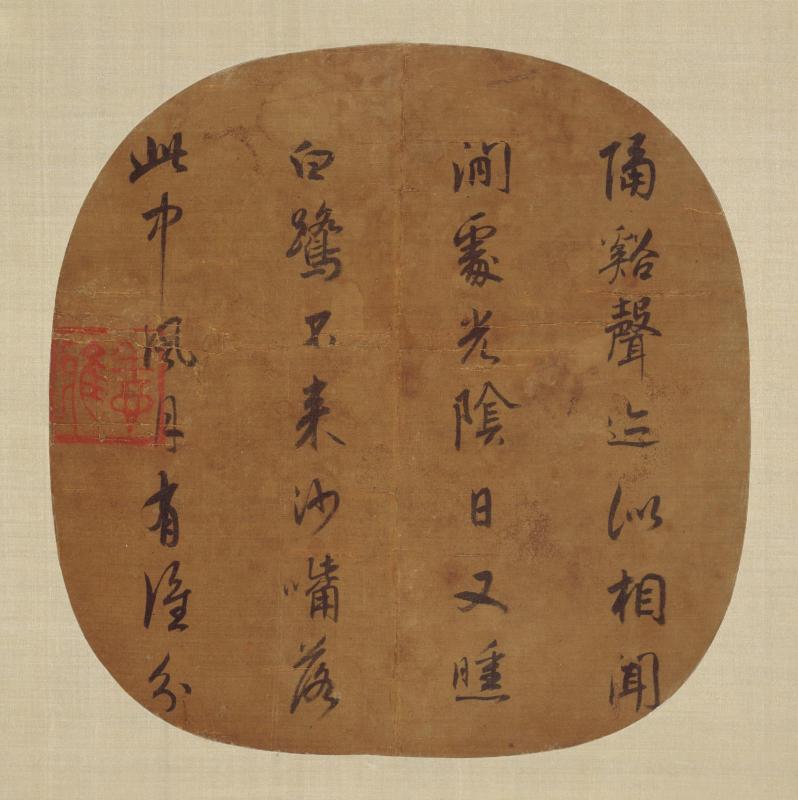 隔谿聲迹似相聞
閒處光陰日又曛
白鷺不来沙嘴落
此中風月有誰分